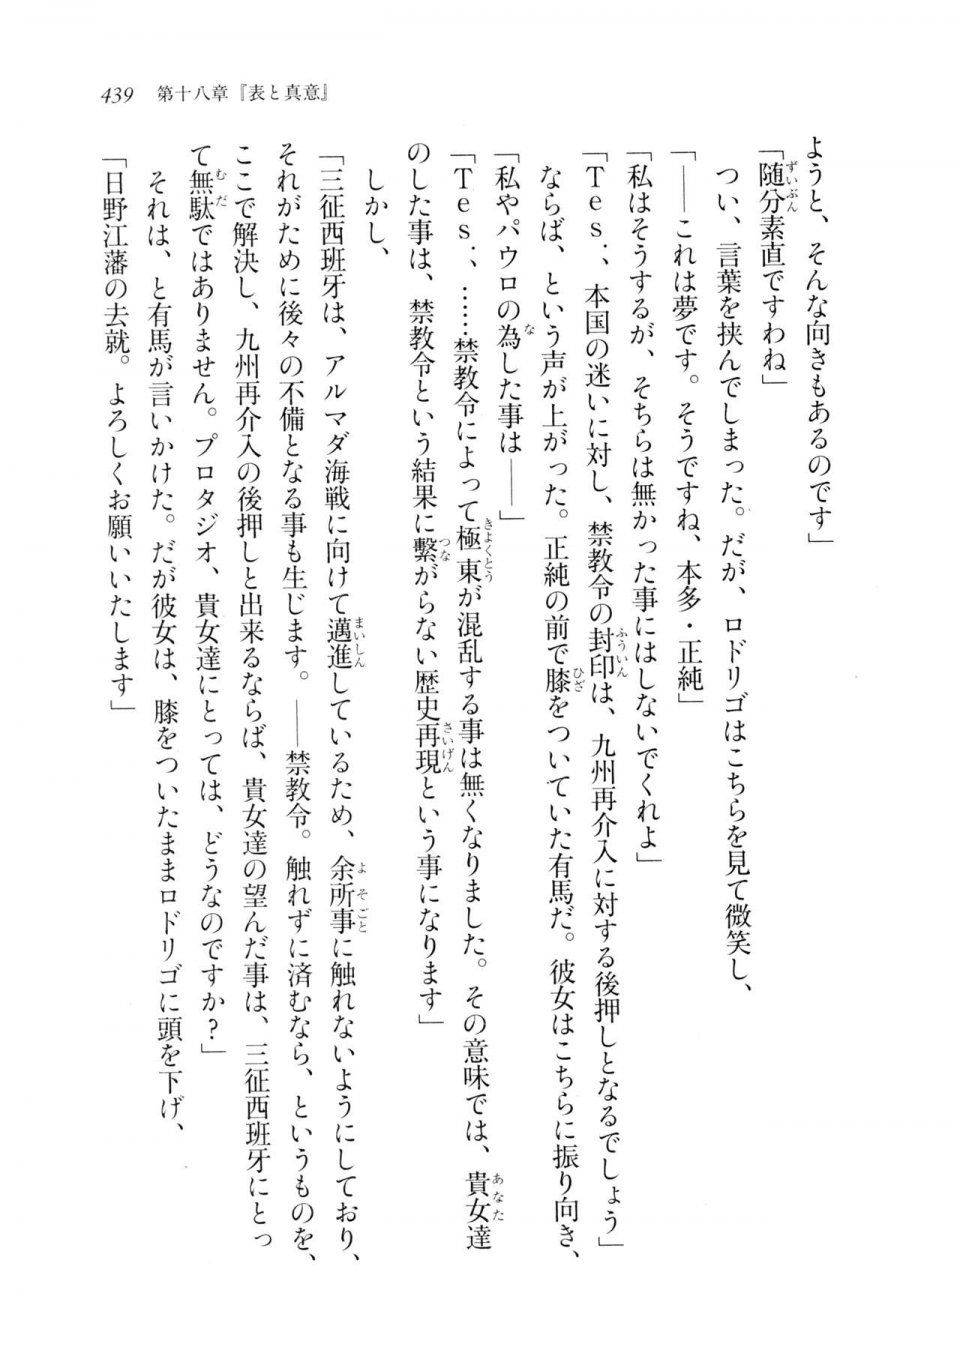 439 第十八章『表と真意』
ようと、そんな向きもあるのです」
「随分素直ですわね」
つい、言葉を挟んでしまった。だが、ロドリゴはこちらを見て微笑し、
「――これは夢です。そうですね、本多・正純」
「私はそうするが、そちらは無かった事にはしないでくれよ」
「Tes.、本国の迷いに対し、禁教令の封印は、九州再介入に対する後押しとなるでしょう」
ならば、という声が上がった。正純の前で膝をついていた有馬だ。彼女はこちらに振り向き、
「私やパウロの為した事は――」
「Tes.、……禁教令によって極東が混乱する事は無くなりました。その意味では、貴女達
のした事は、禁教令という結果に繋がらない歴史再現という事になります」
しかし、
「三征西班牙は、アルマダ海戦に向けて邁進しているため、余所事に触れないようにしており、
それがために後々の不備となる事も生じます。――禁教令。触れずに済むなら、というものを、
ここで解決し、九州再介入の後押しと出来るならば、貴女達の望んだ事は、三征西班牙にとっ
て無駄ではありません。プロタジオ、貴女達にとっては、どうなのですか？」
それは、と有馬が言いかけた。だが彼女は、膝をついたままロドリゴに頭を下げ、
「日野江藩の去就。よろしくお願いいたします」